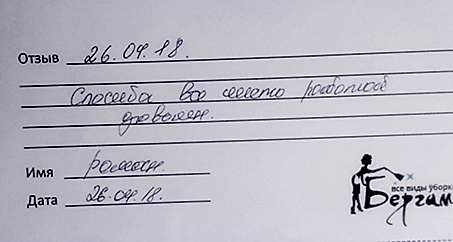 Отзыв 26.04.18.
Спосиба все чисто работой
доволен.
Имя роман
Дата 26.04.18.
все виды уборк
Бергам